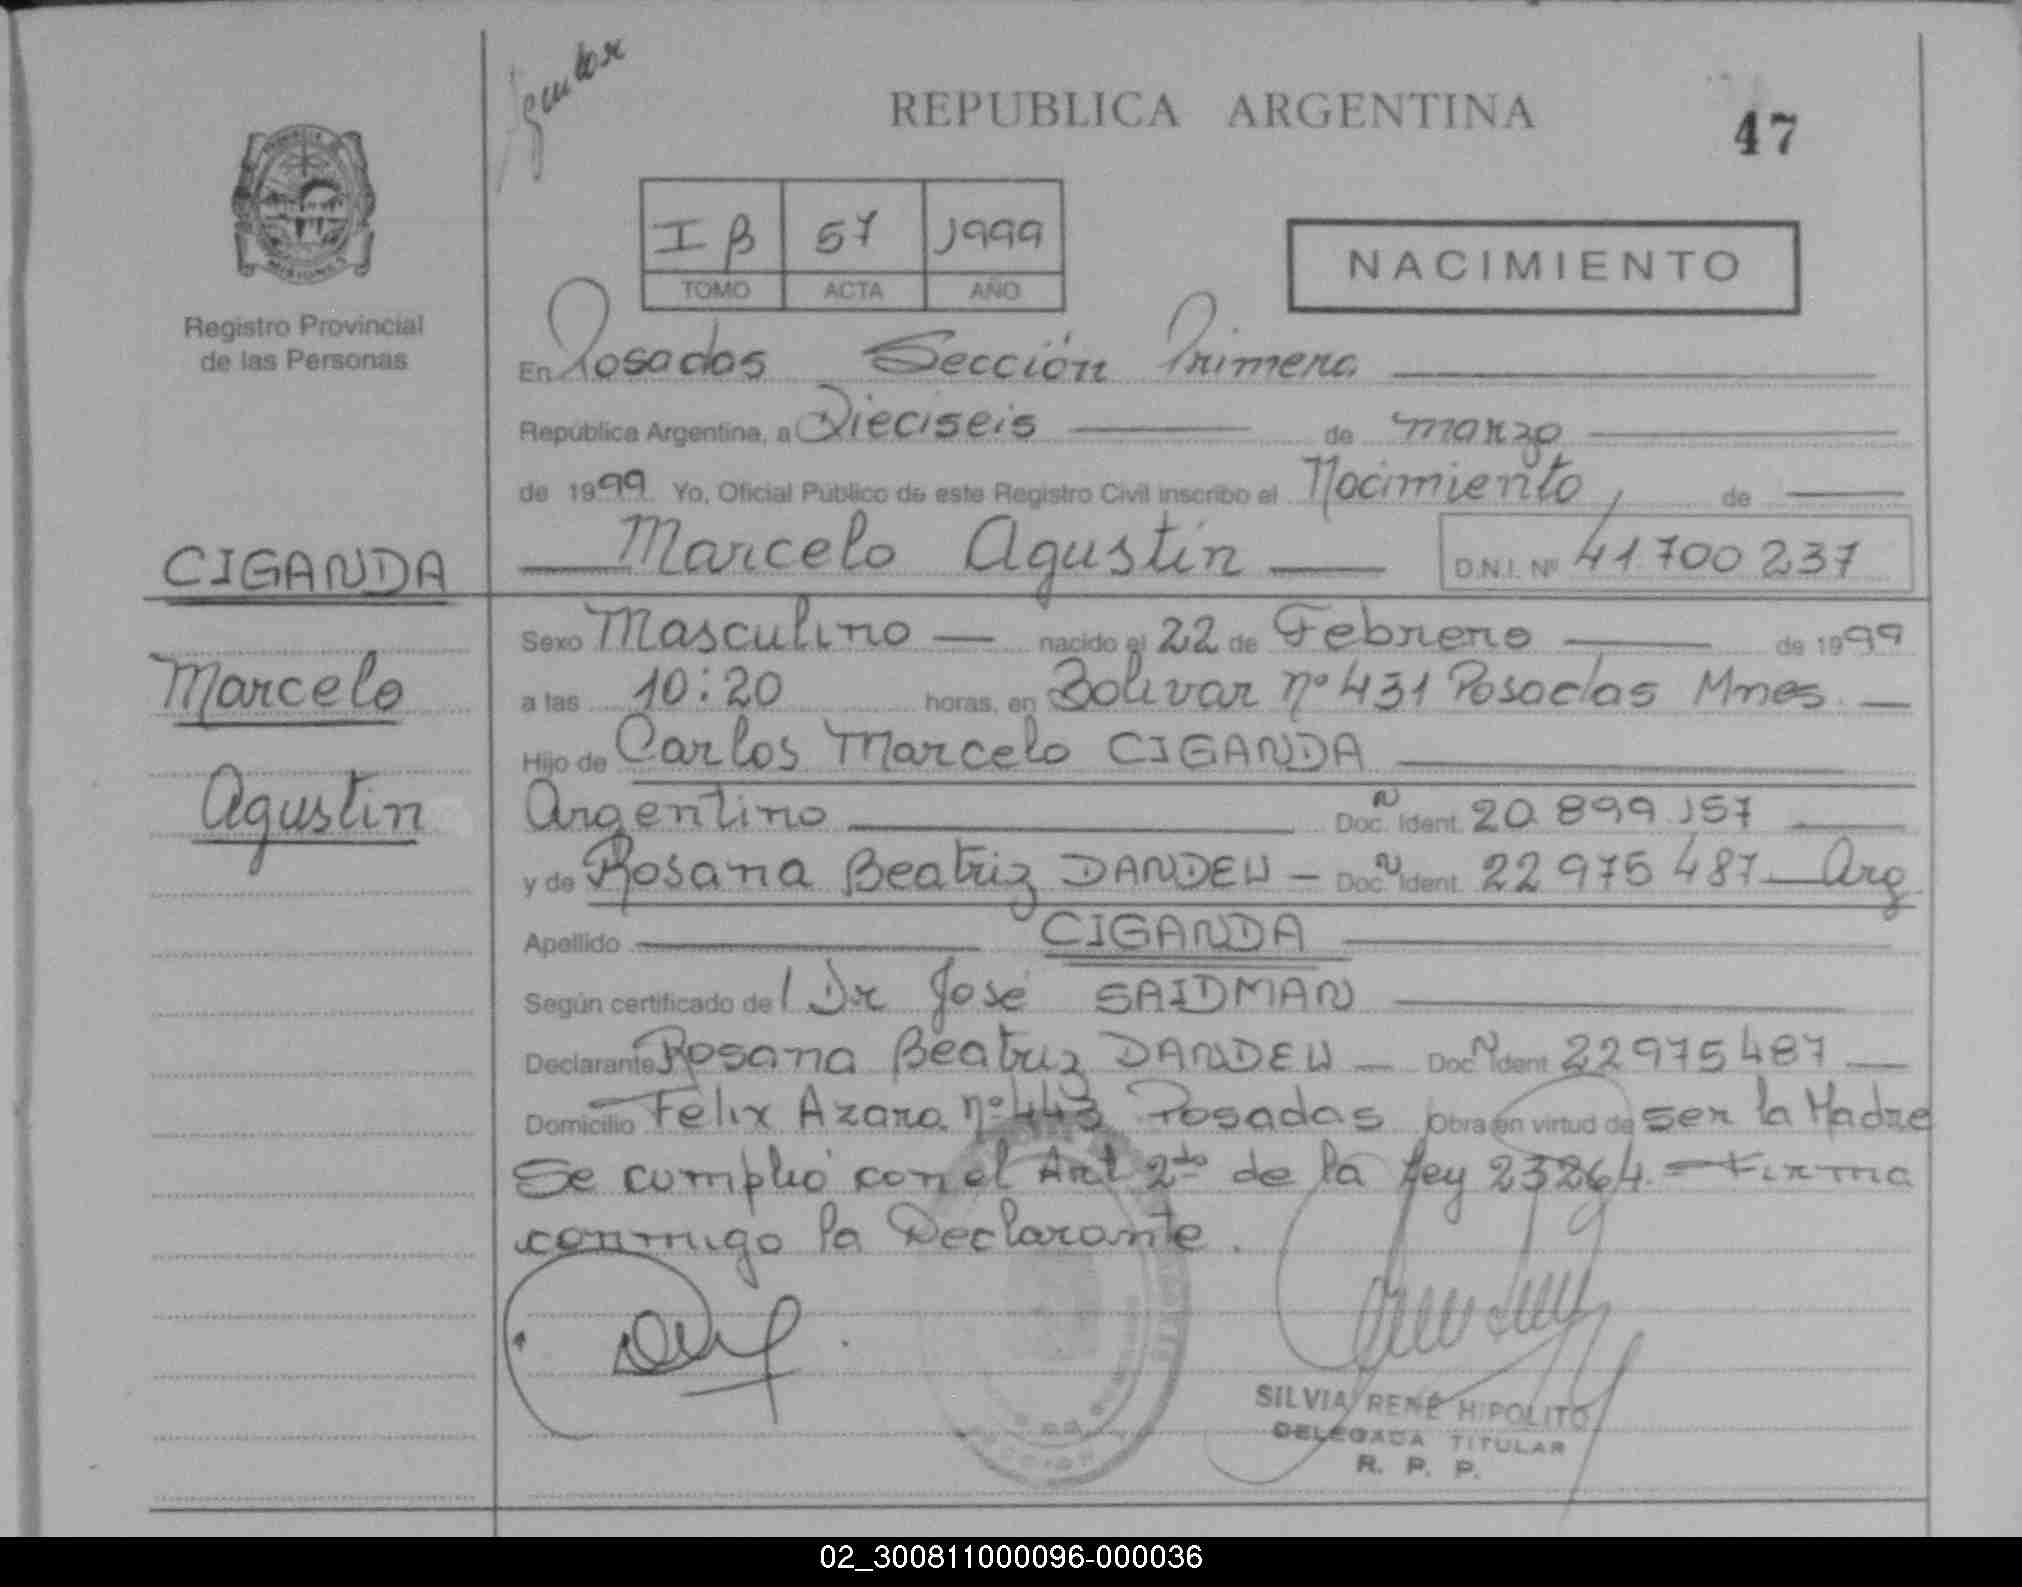 REPUBLICA ARGENTINA
47
I B 57 1999
TOMO ACTA AÑO
NACIMIENTO
Registro Provincial
de las Personas
En Posadas Sección Primera
República Argentina, a Dieciseis de marzo
de 1999 Yo, Oficial Público de este Registro Civil inscribo el Nacimiento, de
Marcelo Agustín D.N.I. Nº 41700237
CIGANDA
Marcelo
Agustin
Sexo Masculino nacido el 22 de Febrero de 1999
a las 10:20 horas, en Bolivar nº 431 Posadas Mnes
Hijo de Carlos Marcelo CIGANDA
Argentino Doc. Ident. 20 899 157
y de Rosana Beatriz DANDEU Doc. Ident. 22 975 487 Arg
Apellido CIGANDA
Según certificado de Dr José SAIDMAN
Declarante Rosana Beatriz DANDEU Doc. Ident 22975487
Domicilio Felix Azara nº 443 Posadas Obra en virtud de ser la Madre
Se cumplió con el Art 2do de la Ley 23264. Firma
conmigo la Declarante.
SILVIA RENÉ HIPOLITO
DELEGADA TITULAR
R. P. P.
02_300811000096-000036